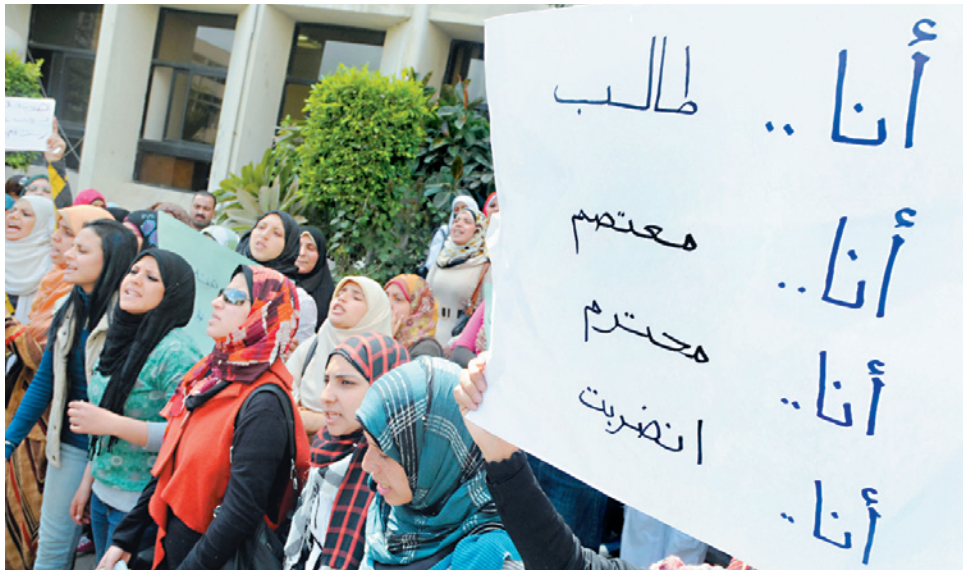 أنا .. طالب
أنا .. معتصم
أنا .. محترم
أنا .. انضربت